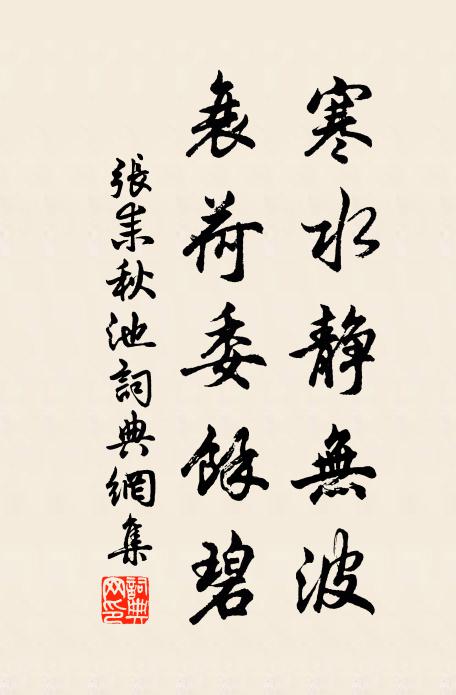 寒水靜無波
衰荷委餘碧
張耒秋池詞典網集
詞典網印